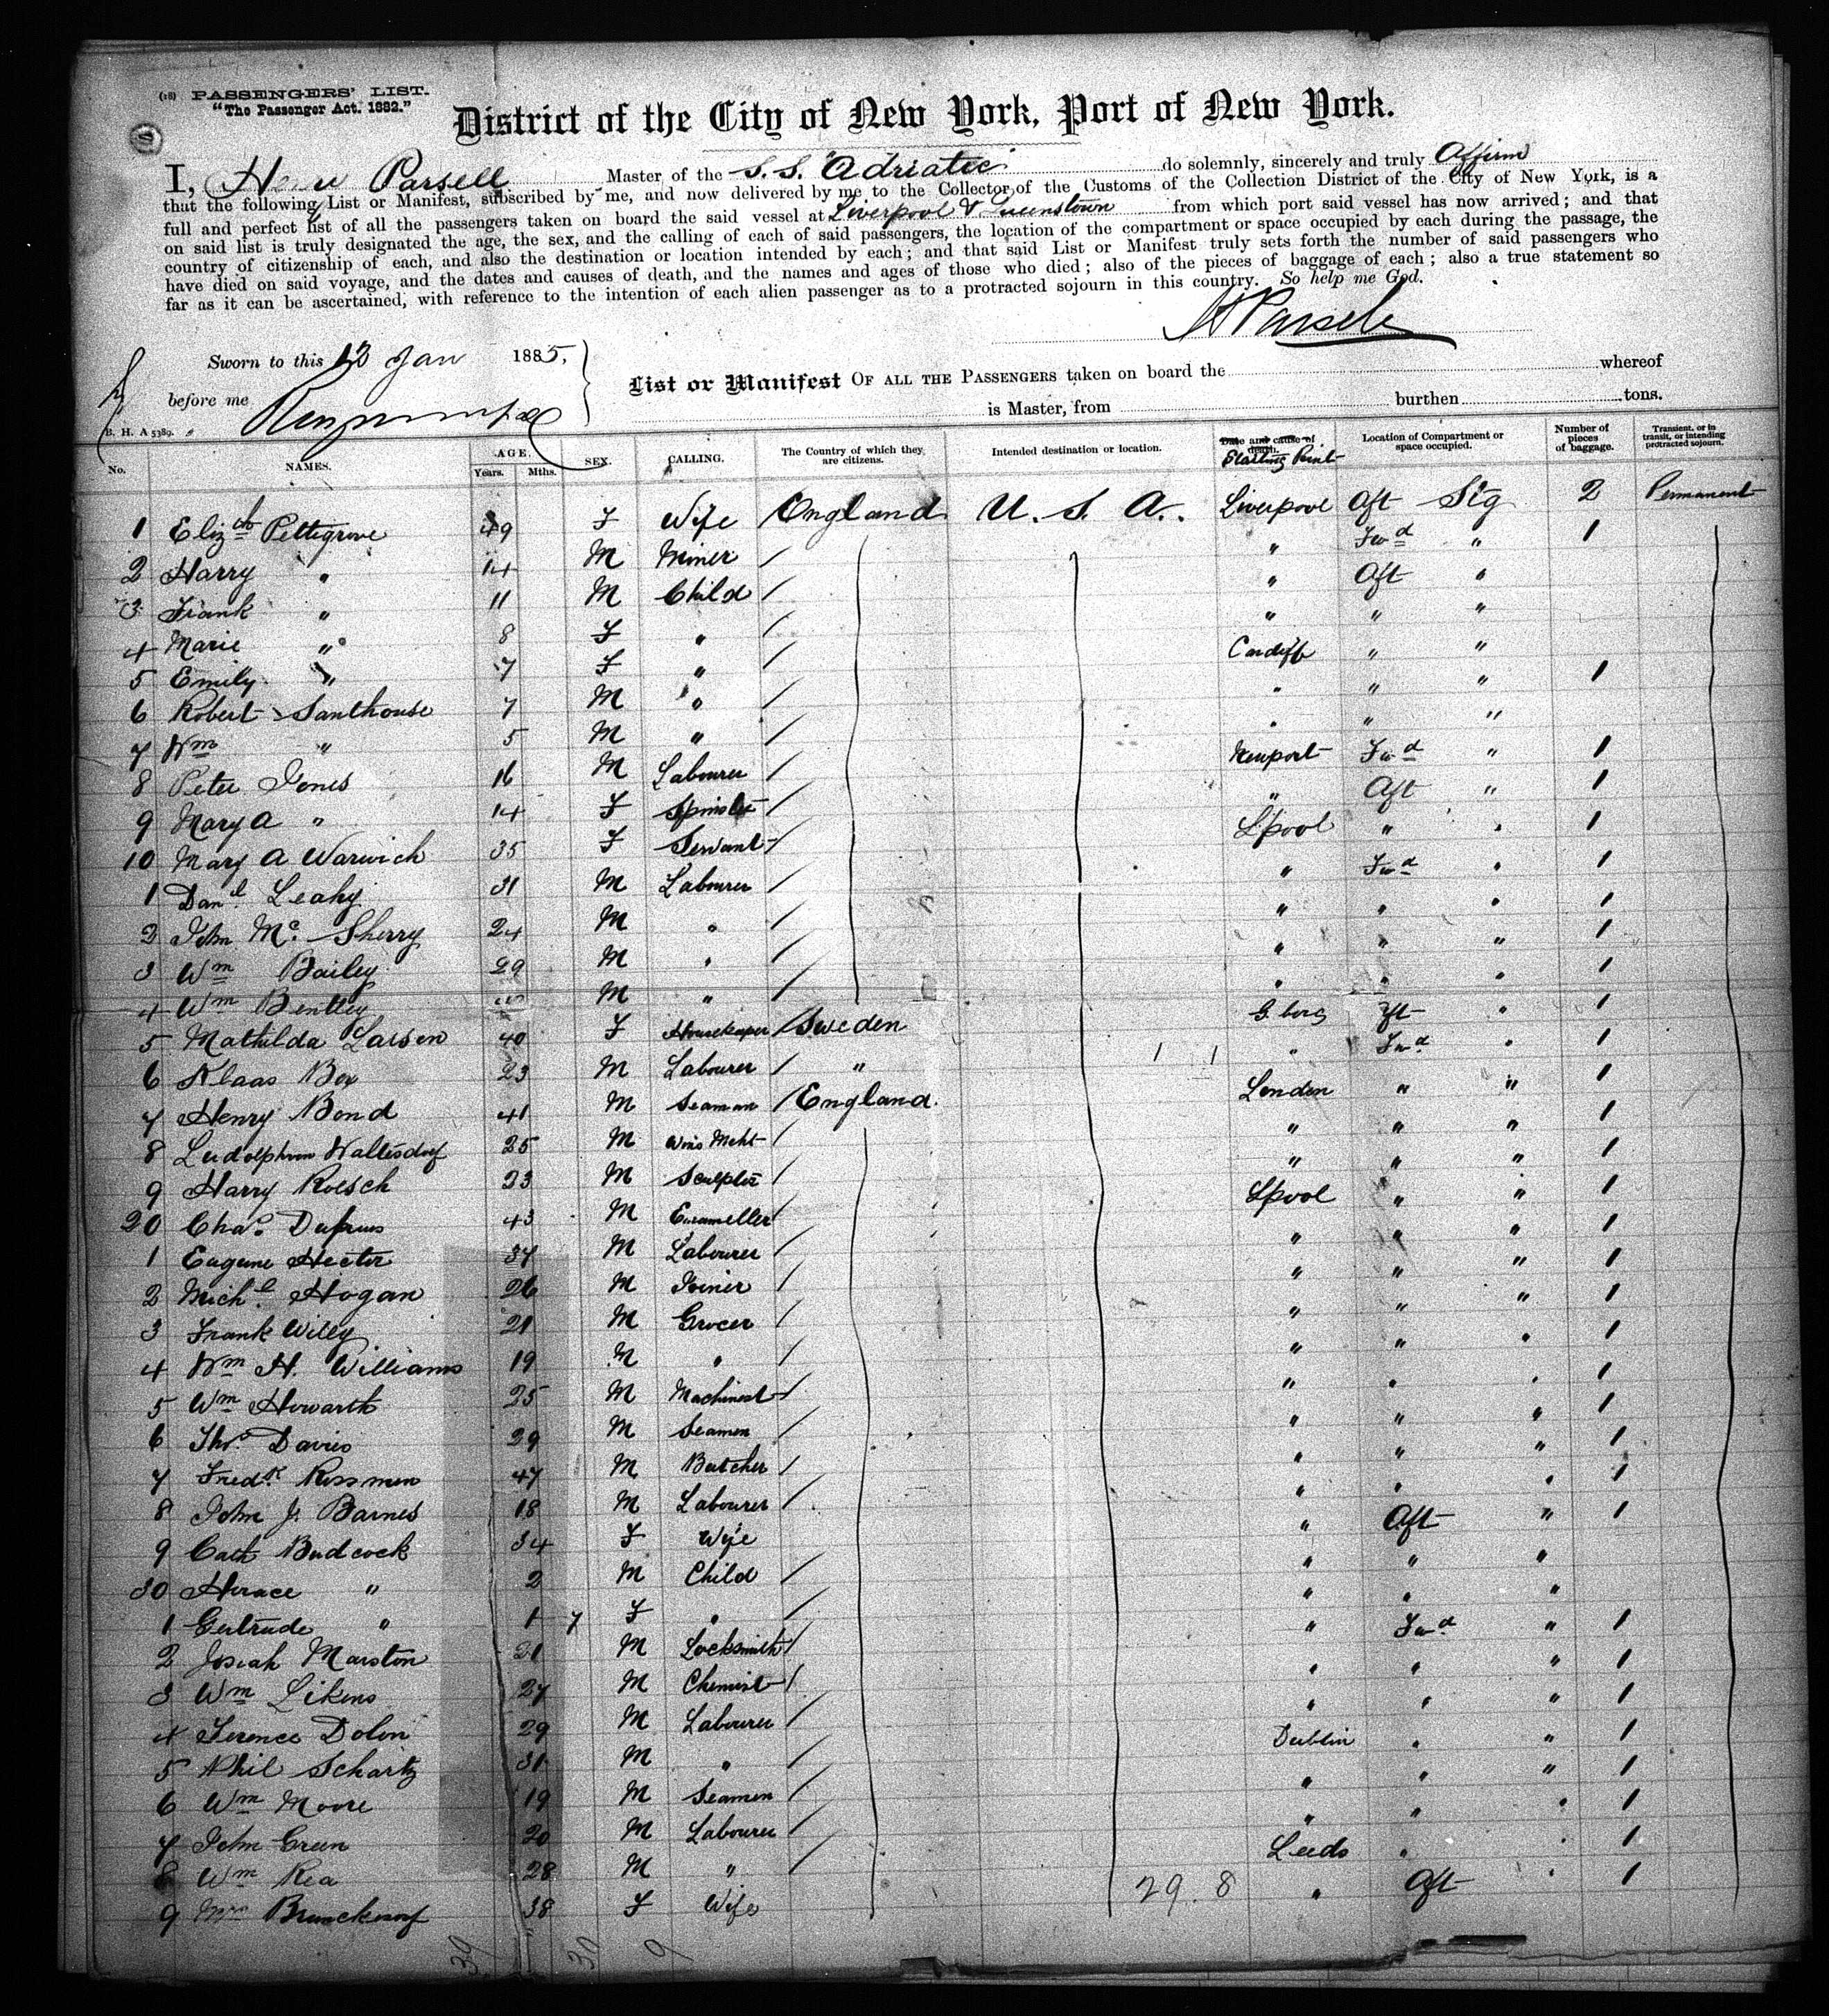 (18) PASSENGERS' LIST.
"The Passenger Act. 1882."
District of the City of New York, Port of New York.
I, Henri Parsell Master of the S. S. "Adriatic" do solemnly, sincerely and truly Affirm
that the following List or Manifest, subscribed by me, and now delivered by me to the Collector of the Customs of the Collection District of the City of New York, is a
full and perfect list of all the passengers taken on board the said vessel at Liverpool & Queenstown from which port said vessel has now arrived; and that
on said list is truly designated the age, the sex, and the calling of each of said passengers, the location of the compartment or space occupied by each during the passage, the
country of citizenship of each, and also the destination or location intended by each; and that said List or Manifest truly sets forth the number of said passengers who
have died on said voyage, and the dates and causes of death, and the names and ages of those who died; also of the pieces of baggage of each; also a true statement so
far as it can be ascertained, with reference to the intention of each alien passenger as to a protracted sojourn in this country. So help me God.
H Parsell
Sworn to this 13 Jan 1885,
before me
List or Manifest OF ALL THE PASSENGERS taken on board the whereof
is Master, from burthen tons.
B. H. A 5389.
No. NAMES. AGE. Years. Mths. SEX. CALLING. The Country of which they are citizens. Intended destination or location. Date and cause of death. Starting Point Location of Compartment or space occupied. Number of pieces of baggage. Transient, or in transit, or intending protracted sojourn.
1 Elizth Pettigrove 49 F Wife England U. S. A. Liverpool Aft Stg 2 Permanent
2 Harry " 14 M Miner / " Fwd " 1
3 Frank " 11 M Child / " Aft "
4 Marie " 8 F " / " " "
5 Emily " 7 F " / Cardiff " "
6 Robert Santhouse 7 M " / " " " 1
7 Wm " 5 M " / " " "
8 Peter Jones 16 M Labourer / Newport Fwd " 1
9 Mary A " 14 F Spinster / " Aft " 1
10 Mary A Warwich 35 F Servant / L'pool " " 1
1 Danl Leahy 31 M Labourer / " Fwd " 1
2 John Mc Sherry 24 M " / " " " 1
3 Wm Bailey 29 M " / " " " 1
4 Wm Bentley M " / " " " 1
5 Mathilda Larsen 40 F Housekeeper / Sweden G.borg Aft " 1
6 Klaas Box 23 M Labourer / " " Fwd " 1
7 Henry Bond 41 M Seaman / England. London " " 1
8 Waltersdorf 25 M Wine Mcht / " " " 1
9 Harry Roesch 23 M Sculptor / " " " 1
20 Chas. Dufrus 43 M Enameller / L'pool " " 1
1 Eugene Hector 37 M Labourer / " " " 1
2 Michl. Hogan 26 M Joiner / " " " 1
3 Frank Willy 21 M Grocer / " " " 1
4 Wm H. Williams 19 M " / " " " 1
5 Wm Howarth 25 M Machinest / " " " 1
6 Thos. Davies 29 M Seamen / " " " 1
7 Fredk. Rossmen 47 M Butcher / " " " 1
8 John J. Barnes 18 M Labourer / " " " 1
9 Cath Budcock 34 F Wife " Aft " 1
30 Horace " 2 M Child / " " "
1 Gertrude " 1 7 F " / " " "
2 Josiah Marston 21 M Locksmith / " Fwd " 1
3 Wm Likens 27 M Chemist / " " " 1
4 Terence Dolon 29 M Labourer / " " " 1
5 Phil Schartz 31 M " / Dublin " " 1
6 Wm Moore 19 M Seamen / " " " 1
7 John Green 20 M Labourer / " " " 1
8 Wm Rea 28 M " / Leeds " " 1
9 Mrs 38 F Wife 29. 8 " Aft " 1
39 30 9